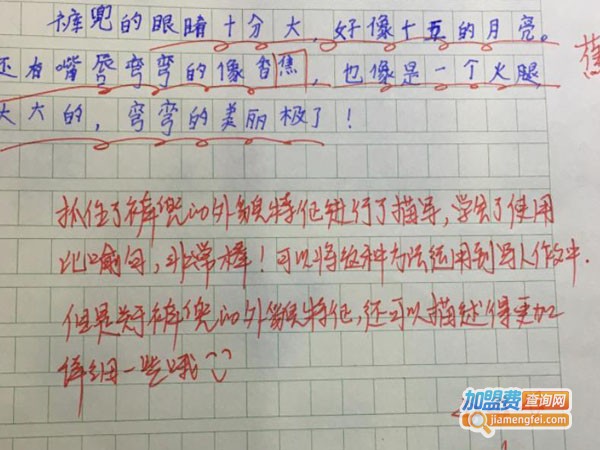 裤兜的眼睛十分大,好像十五的月亮。
还有嘴唇弯弯的像香焦,也像是一个火腿,
大大的,弯弯的美丽极了!
蕉
抓住了裤兜的外貌特征进行了描写,学会了使用
比喻句,非常棒!可以将这种方法运用到写人作文中.
但是关于裤兜的外貌特征,还可以描述得更加
详细一些哦
加盟费查询网
jiamengfei.com